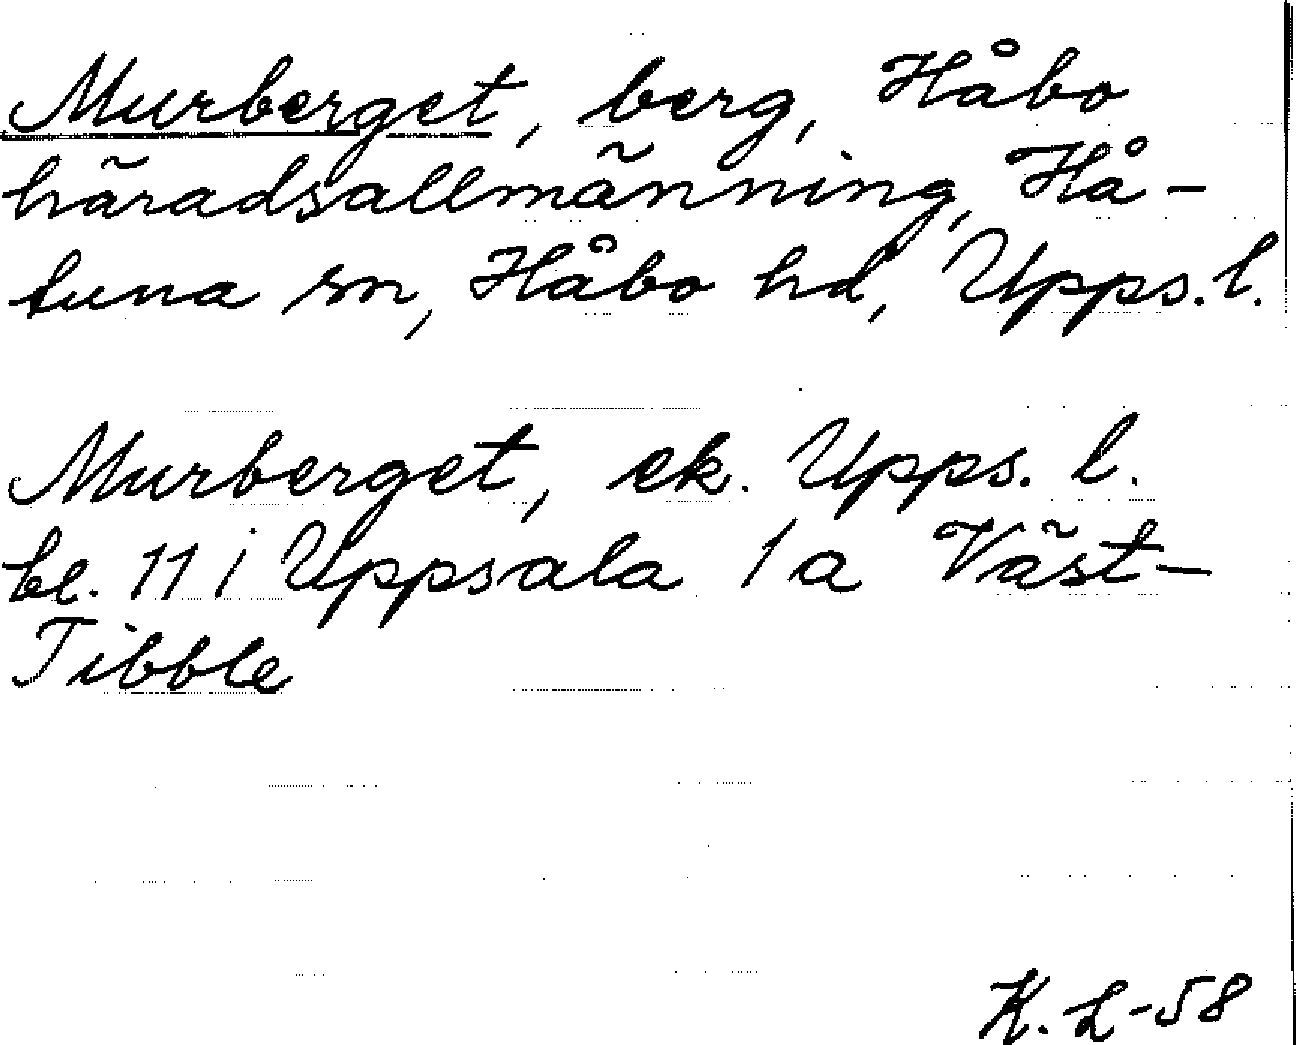 Murberget, berg, Håbo
häradsallmänning, Hå-
tuna sn, Håbo hd, Upps. l.
Murberget, ek. Upps. l.
bl. 11 i Uppsala 1a Väst-
Tibble
K. L-58